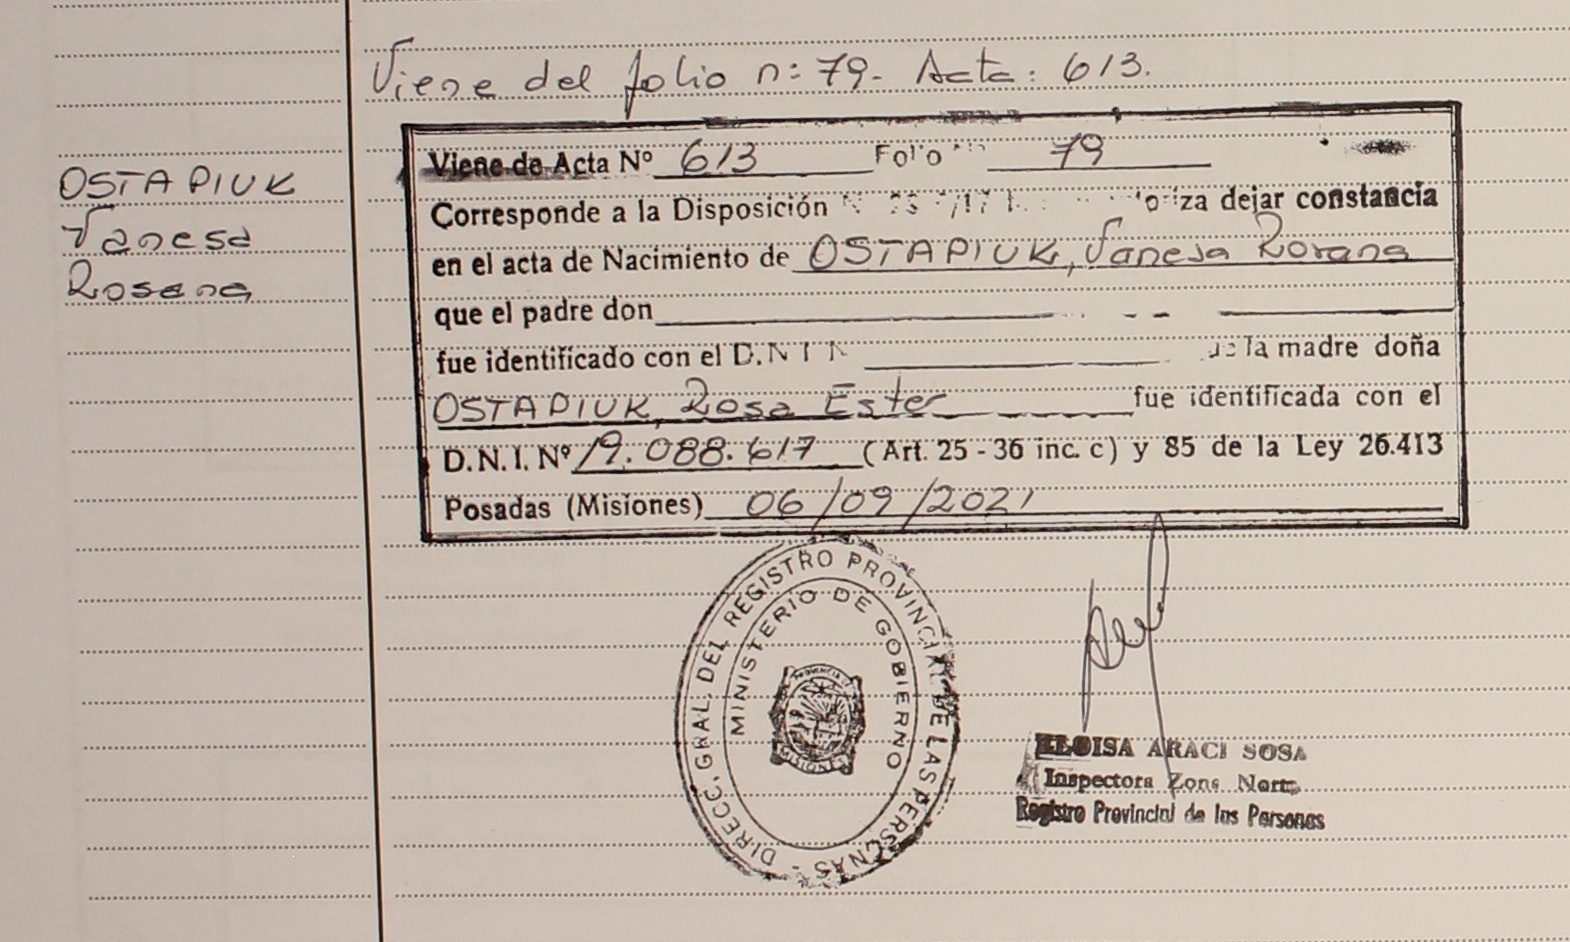 Viene del folio n: 79. Acta: 613.
OSTAPIUK
Vanesa
Rosana
Viene de Acta Nº 613 Folio 79
Corresponde a la Disposición dejar constancia
en el acta de Nacimiento de OSTAPIUK, Vanesa Rosana
que el padre don
fue identificado con el D.N.I. de la madre doña
OSTAPIUK, Rosa Ester fue identificada con el
D.N.I. Nº 19.088.617 (Art. 25 - 36 inc. c) y 85 de la Ley 26.413
Posadas (Misiones) 06/09/2021
DIRECC. GRAL. DEL REGISTRO PROVINCIAL DE LAS PERSONAS -
MINISTERIO DE GOBIERNO
PROVINCIA DE
MISIONES
ELOISA ARACI SOSA
Inspectora Zona Norte
Registro Provincial de las Personas